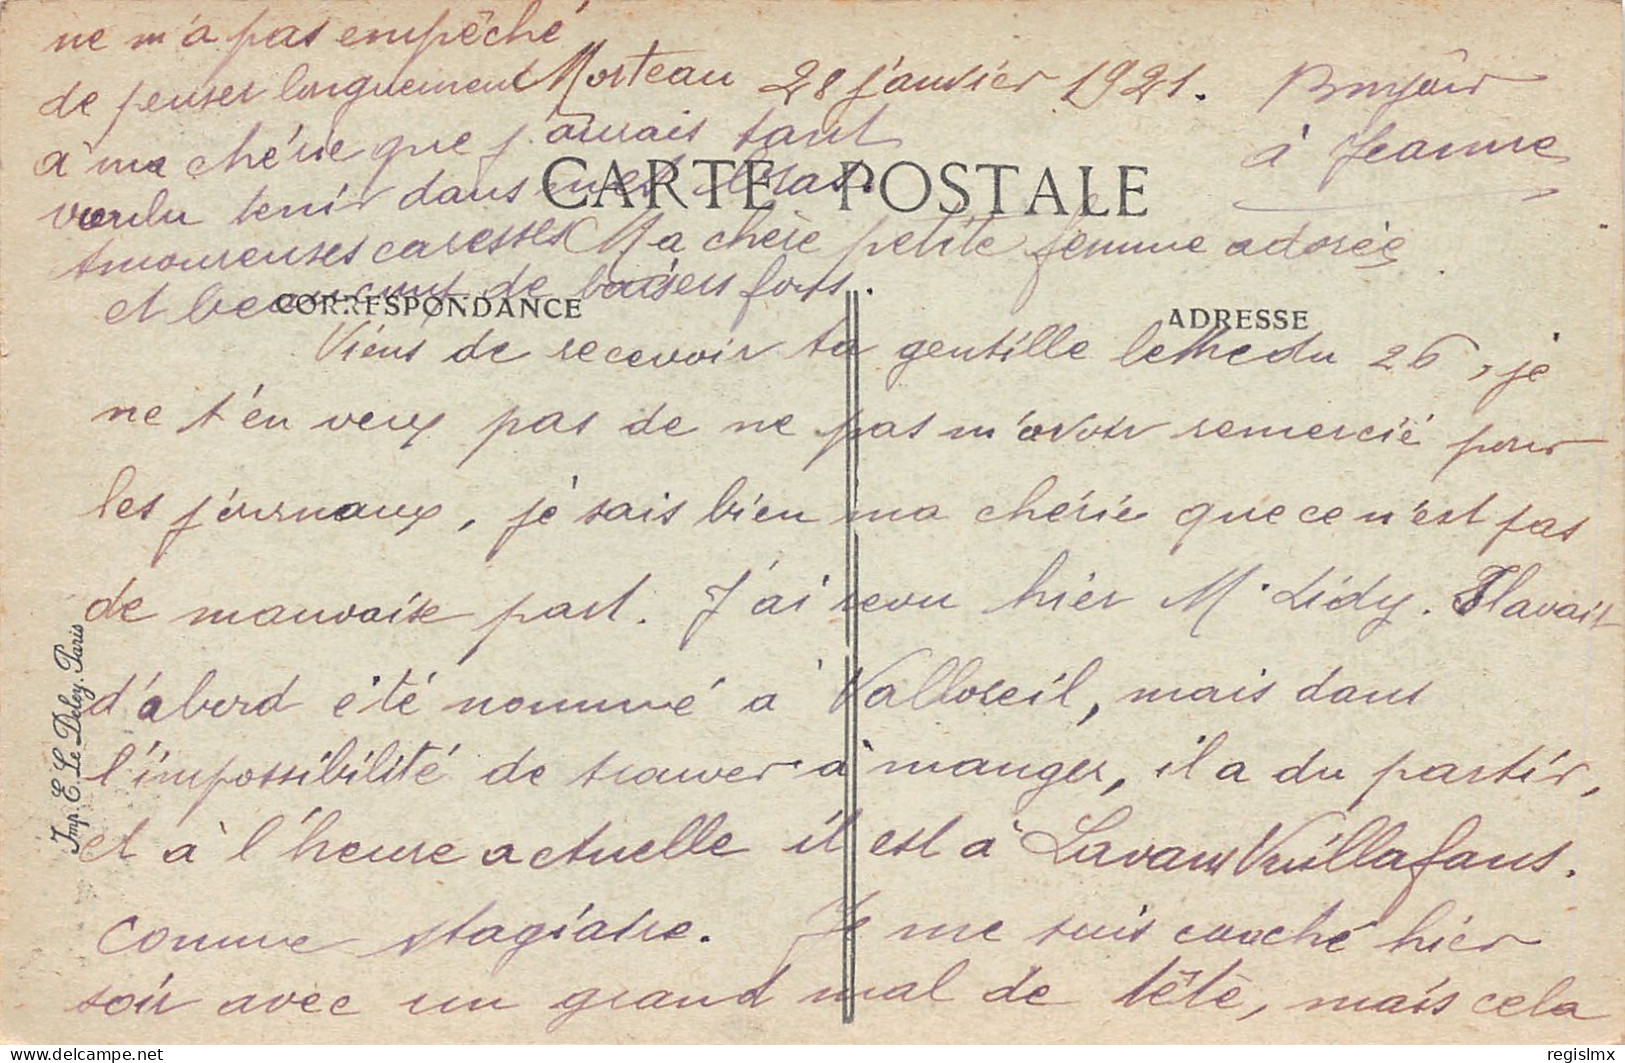 Morteau 28 janvier 1921.
Bonjour
à Jeanne
CARTE POSTALE
Ma chère petite femme adorée
CORRESPONDANCE
ADRESSE
Viens de recevoir ta gentille lettre du 26, je
ne t'en veux pas de ne pas m'avoir remercié pour
les journaux, je sais bien ma chérie que ce n'est pas
de mauvaise part. J'ai revu hier M. Lidy. Il avait
d'abord été nommé à Valloreil, mais dans
l'impossibilité de trouver à manger, il a du partir,
et à l'heure actuelle il est à Lavans Vuillafans.
comme stagiaire. Je me suis couché hier
soir avec un grand mal de tête, mais cela
ne m'a pas empêché
de penser longuement
à ma chérie que j'aurais tant
voulu tenir dans mes bras.
Amoureuses caresses
et beaucoup de baisers fous.
Imp. E. Le Deley. Paris
delcampe.net
regislmx